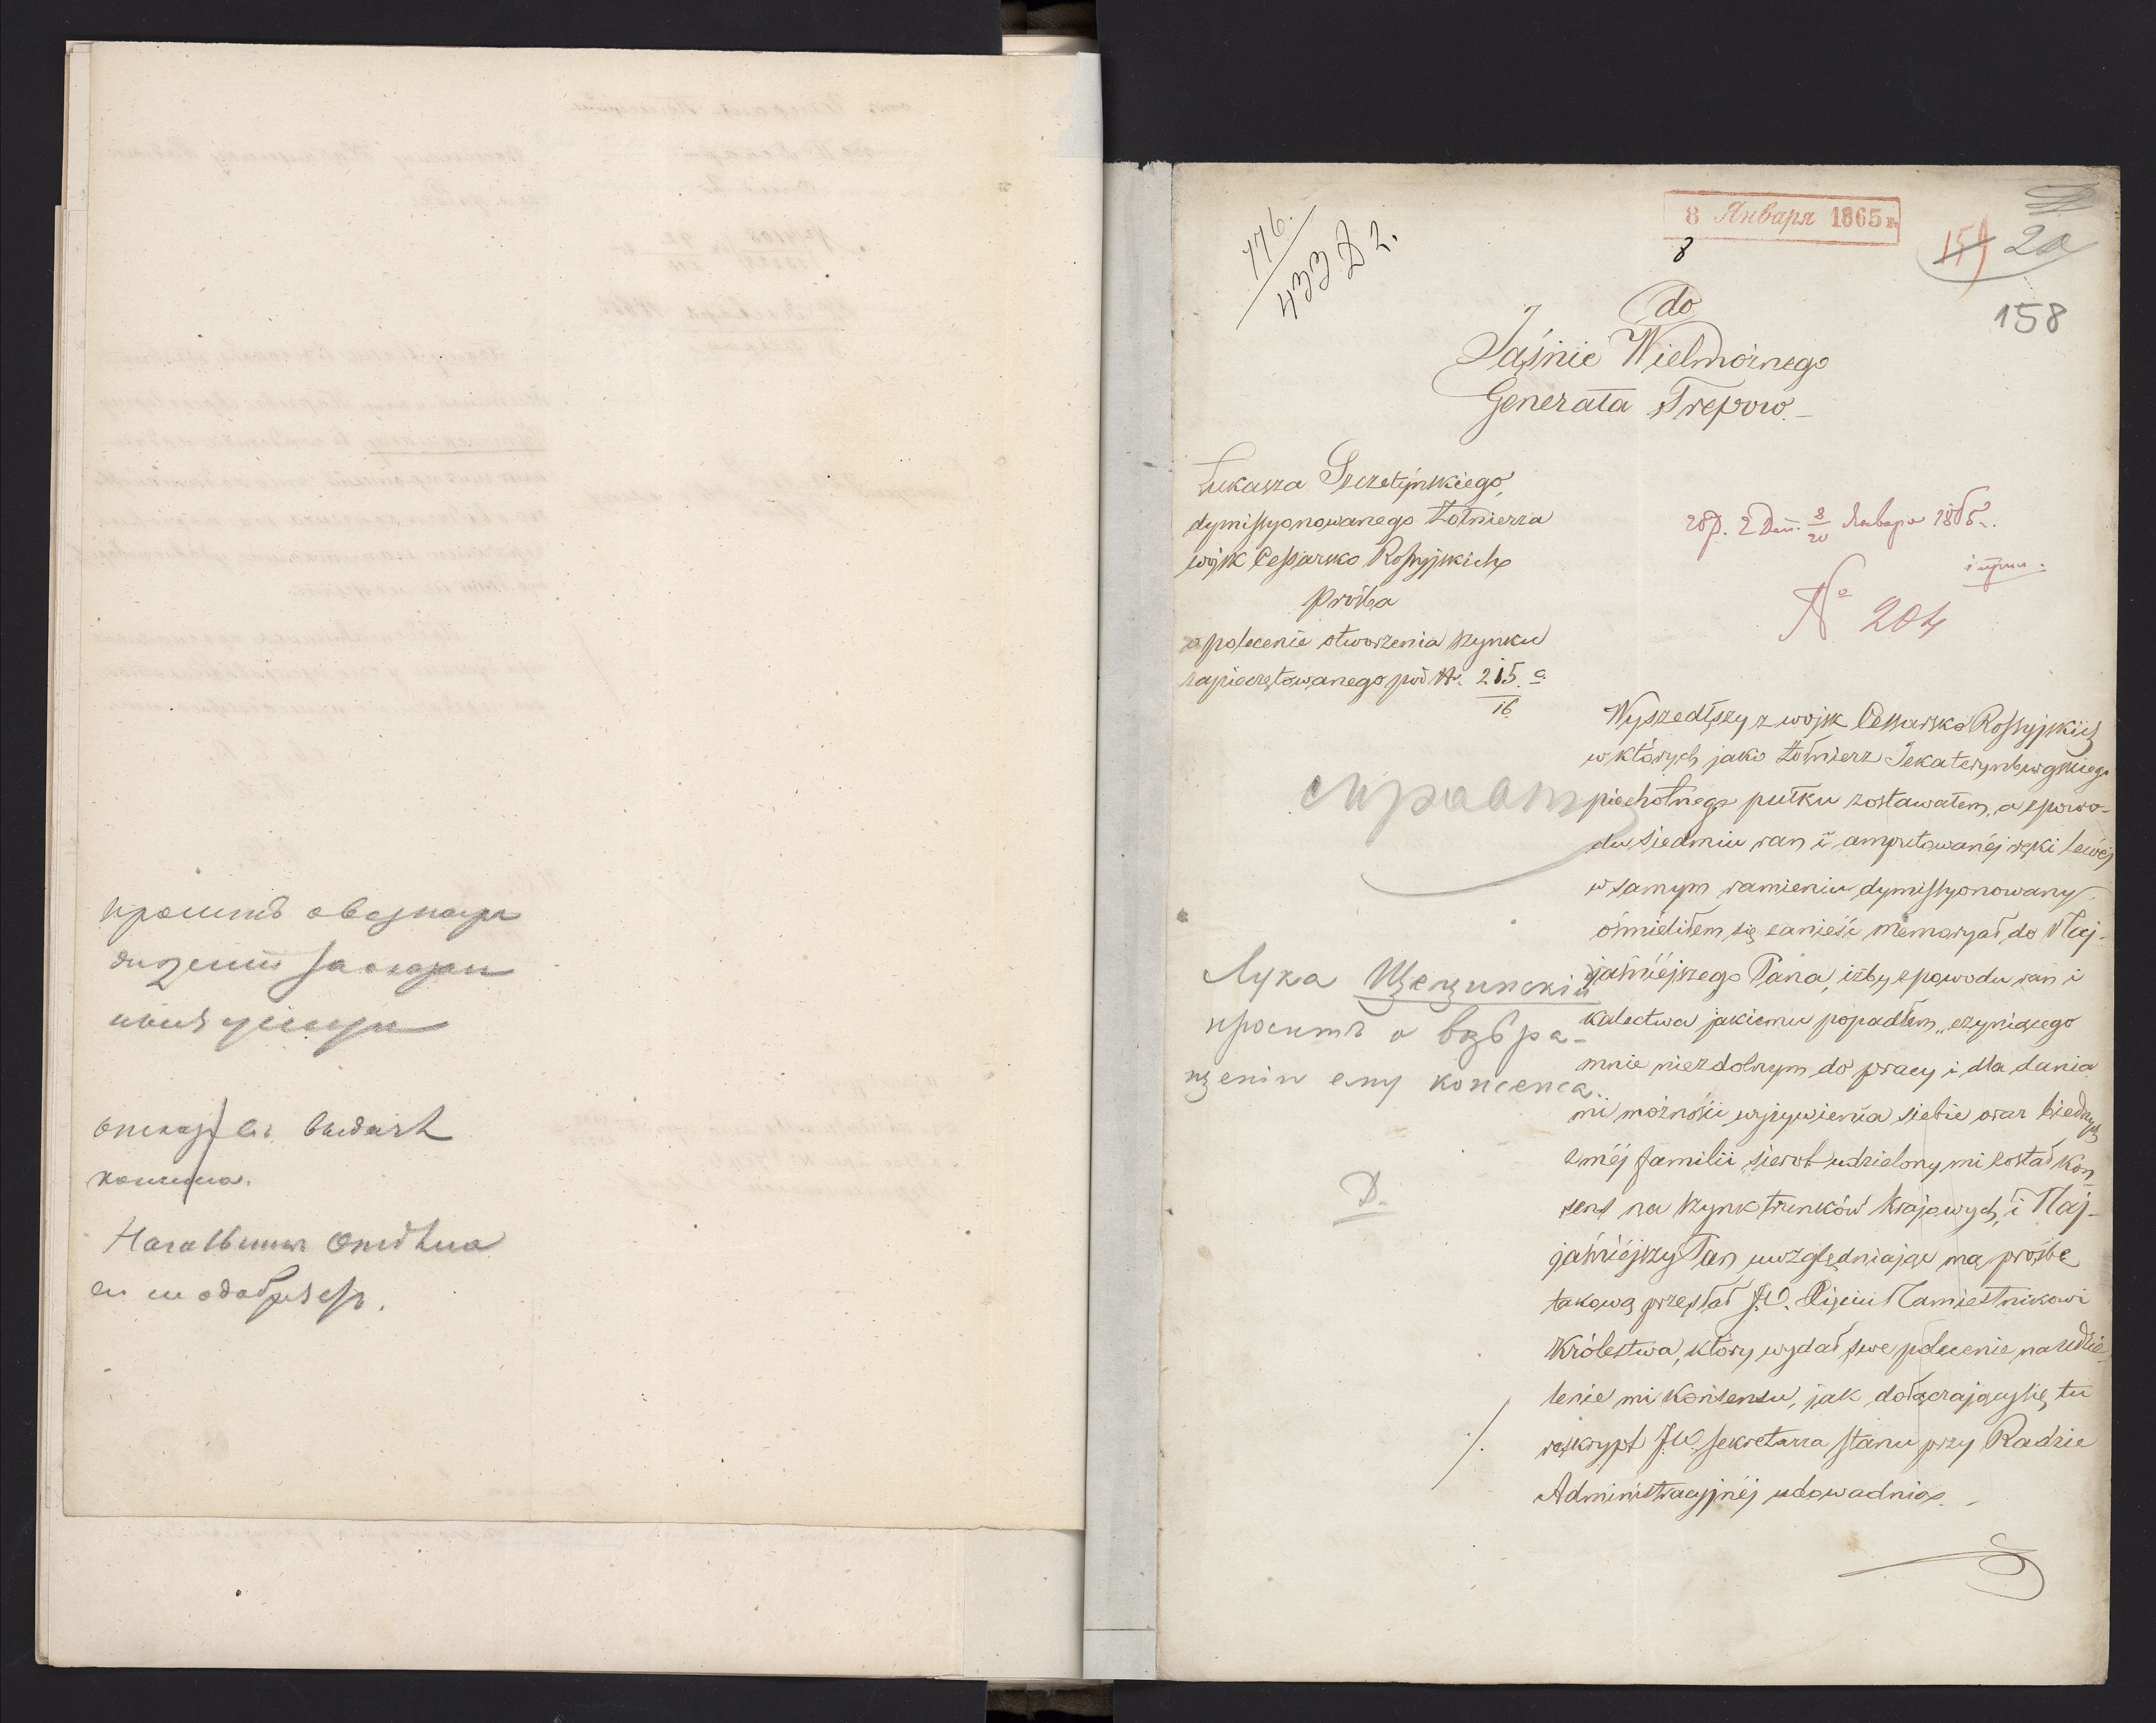 проситъ о вознагра
ждении за
выдать
8 Января 1865 г.
8
776.
433 D 2.
159 20
158
do
Jaśnie Wielmożnego
Generała Trepow. –
Łukasza Szczetyńskiego,
dymissyonowanego żołnierza
wojsk Cessarsko Rossyjskich
prośba
o polecenie otworzenia szynku
zapieczętowanego pod N. 215. c.
16
28 р. 2 Деп. 8/20 Января 1865 г.
№ 204
Wyszedłszy z wojsk Cessarsko Rossyjskich
w których jako żołnierz Jekaterynburgskiego
piechotnego pułku zostawałem, a z powo-
du siedmiu ran i amputowanéj ręki lewéj
w samym ramieniu dymissyonowany,
ośmieliłem się zanieść memoryał do Naj-
jaśniejszego Pana, iżby z powodu ran i
kalectwa jakiemu popadłem, czyniącego
mnie niezdolnym do pracy i dla dania
mi możności wyżywienia siebie oraz biednych
z méj familii sierot udzielony mi został kon
sens na szynk trunków krajowych, i Naj-
jaśniejszy Pan uwzględniając mą prośbę
takową przesłał J.O. Xięciu Namiestnikowi
Królestwa, który wydał swe polecenie na udzie-
lenie mi konsensu, jak dołączający się tu
reskrypt J.W. Sekretarza stanu przy Radzie
Administracyjnéj udowadnia. –
справка
Лука Щецинскій
проситъ о возвра-
щеніи ему консенса.
D.